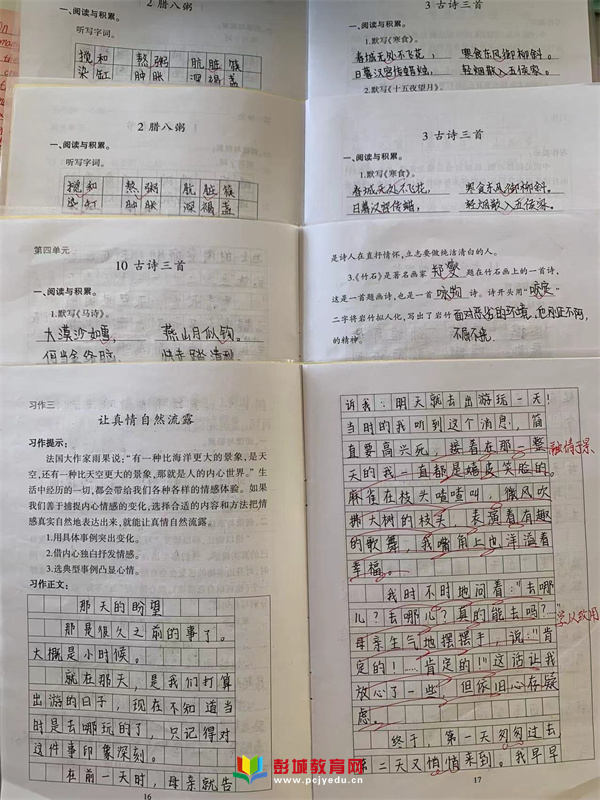 2 腊八粥
一、阅读与积累。
听写字词。
搅和 熬粥 肮脏 筷
染缸 肿胀 深褐 盖
3 古诗三首
一、阅读与积累。
1.默写《寒食》。
春城无处不飞花, 寒食东风御柳斜。
日暮汉宫传蜡烛, 轻烟散入五侯家。
2.默写《十五夜望月》。
2 腊八粥
一、阅读与积累。
听写字词。
搅和 熬粥 肮脏 筷
染缸 肿胀 深褐 盖
3 古诗三首
一、阅读与积累。
1.默写《寒食》。
春城无处不飞花, 寒食东风御柳斜。
日暮汉宫传蜡 轻烟散入五侯家。
第四单元
10 古诗三首
一、阅读与积累。
1.默写《马诗》。
大漠沙如雪, 燕山月似钩。
何当金络脑, 快走踏清秋
是诗人在直抒情怀,立志要做纯洁清白的人。
3.《竹石》是著名画家 郑燮 题在竹石画上的一首诗,
这是一首题画诗,也是一首 咏物 诗。诗开头用“咬定”
二字将岩竹拟人化,写出了岩竹 面对恶劣的环境,也刚正不阿,
的精神。 不屈不挠
习作三
让真情自然流露
习作提示:
法国大作家雨果说:“有一种比海洋更大的景象,是天
空,还有一种比天空更大的景象,那就是人的内心世界。”生
活中经历的一切,都会带给我们各种各样的情感体验。如果
我们善于捕捉内心情感的变化,选择合适的内容和方法把情
感真实自然地表达出来,就能让真情自然流露。
1.用具体事例突出变化。
2.借内心独白抒发情感。
3.选典型事例凸显心情。
习作正文:
那天的盼望
那是很久之前的事了。
大概是小时候。
就在那天,是我们打算
出游的日子,现在不知道当
时是去哪玩的了,只记得对
这件事印象深刻。
在前一天时,母亲就告
16
诉我:明天就去出游玩一天!
当时的我听到这个消息,简
直要高兴死,接着在那一整
天的我一直都是嬉皮笑脸的。
麻雀在枝头喳喳叫,微风吹
拂大树的枝头,表演着有趣
的歌舞,我嘴角上也洋溢着
幸福。
融情于景
我时不时地问着:“去哪
儿?去哪儿?真的能去吗?…”
母亲生气地摆摆手,说:“肯
定的!……肯定的!!”这话让我
放心了一些,但依旧心存疑
虑。
学以致用
终于,第一天匆匆过去,
第二天又悄悄来到。我早早
17
彭城教育网
www.pcjyedu.cn